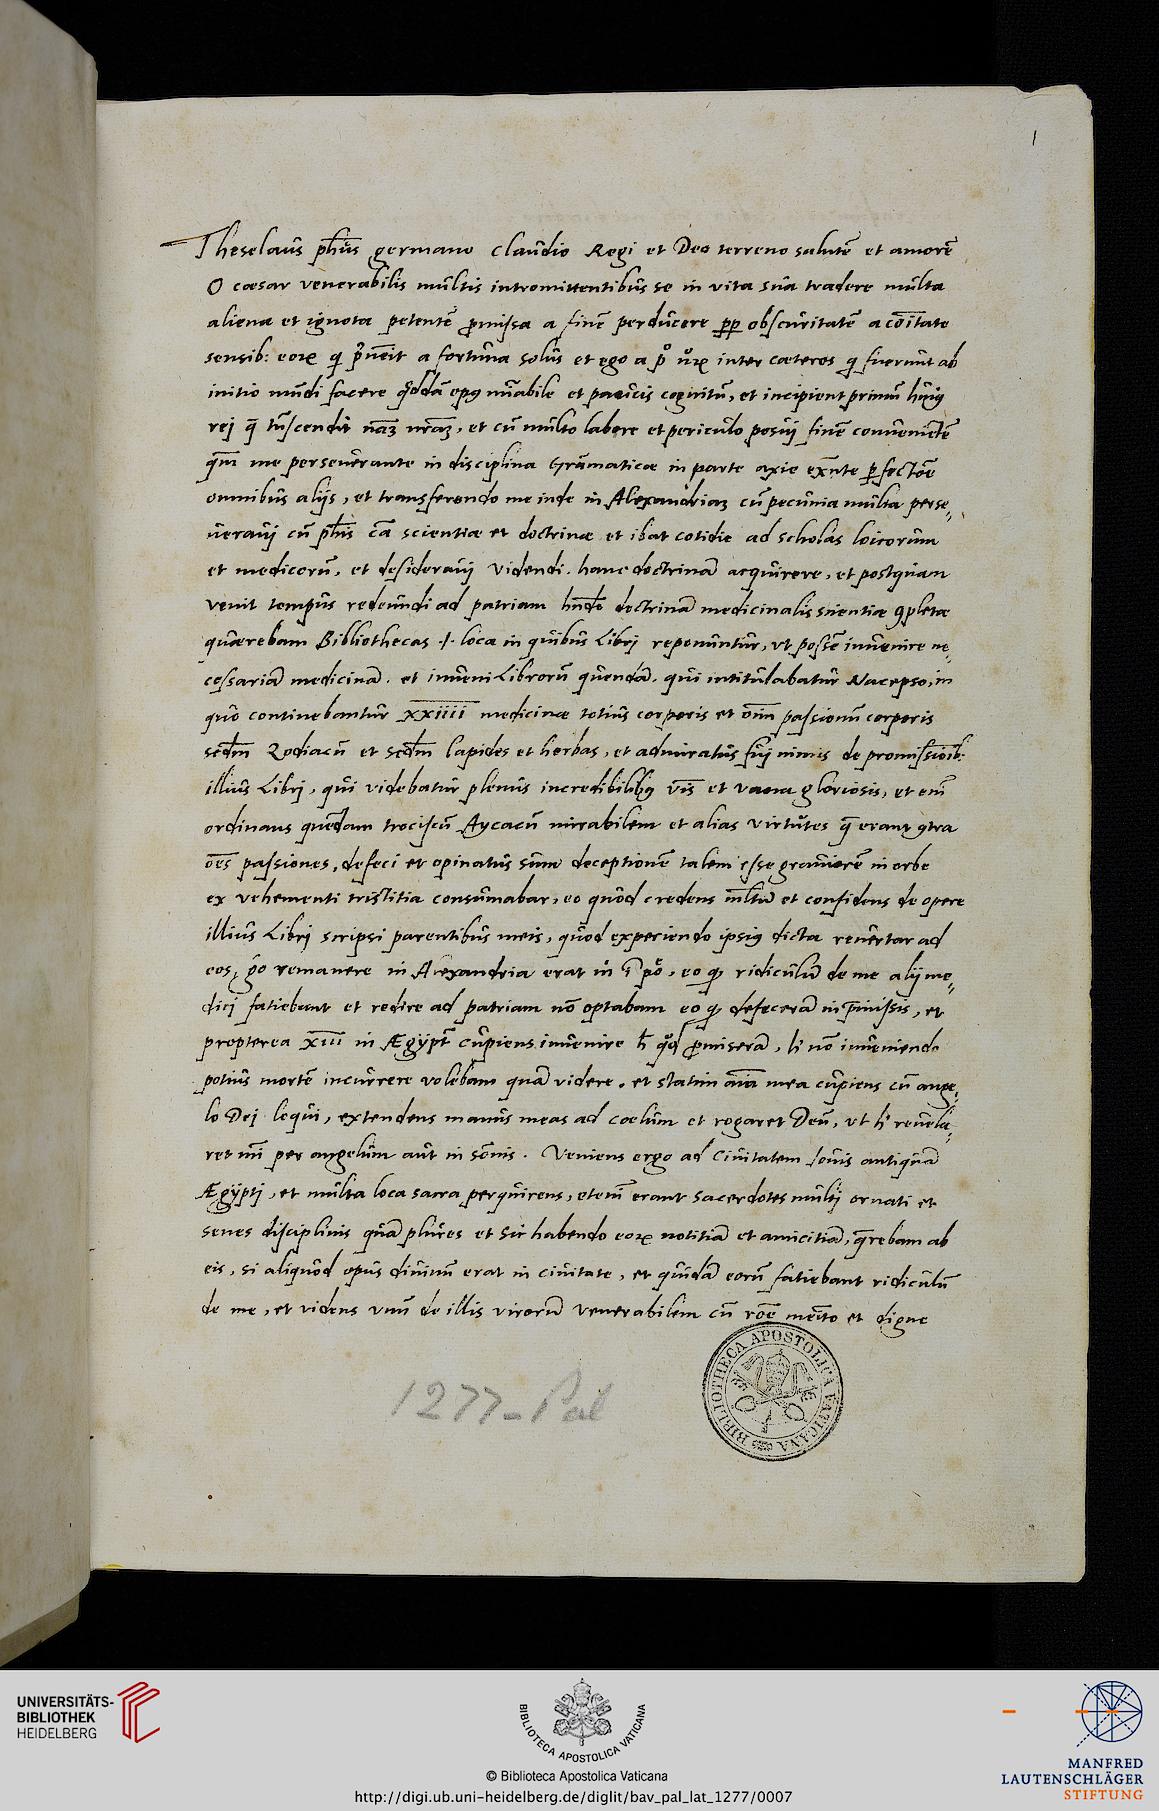 1
Theselaus ph̃us germano Claudio Regi et Deo terreno salutẽ et amorẽ
O cæsar venerabilis multis intromittentibus se in vita sua tradere multa
aliena et ignota petentẽ ꝓmissa a finẽ perducere ꝓꝑ obscuritatẽ a cõitate
sensib: eoꝝ a fortuna solus et ego a inter cæteros fuerunt ab
initio mũdi facere opꝰ mĩabile et paucis cognitũ, et incipient primũ huiꝰ
rej et cũ multo labore et periculo posuj finẽ convenientẽ
me perseverante in disciplina Grãmaticæ in parte axie
omnibus alijs, et transferendo me inde in Alexandriaꝫ cũ pecunia multa perse„
veravj cũ ph̃is cã scientiæ et doctrinæ et ibat cotidie ad scholas loicorum
et medicorũ, et desideravj videndi. hanc doctrinã acquirere, et postquam
venit tempus redeundi ad patriam doctrinã medicinalis scientiæ ꝯpletæ
quærebam Bibliothecas .i. loca in quibus Librj reponuntur, ut possẽ invenire ne„
cessariã medicinã. et inveni Librorũ quendã. qui intitulabatur Nacepso, in
quo continebantur xxiiii medicinæ totius corporis et oĩm passionũ corporis
secdm̃ Zodiacũ et secdm̃ lapides et herbas, et admiratus fuj nimis de promissioib:
illius Librj, qui videbatur plenus incredibilibꝰ et vana gloriosis, et enĩ
ordinans quendam trociscũ Aycacũ mirabilem et alias virtutes q̃ erant ꝯtra
oẽs passiones, defeci et opinatus sum deceptionẽ talem esse graviorẽ in orbe
ex vehementi tristitia consumabar, eo quod credens mltũ et confidens de opere
illius Librj scripsi parentibus meis, quod experiendo ipsiꝰ dicta revertar ad
eos, remanere in Alexandria erat eo ꝙ ridiculũ de me alij me„
dicj fatiebant et redire ad patriam nõ optabam eo ꝙ defecerã in p̃missis, et
propterea xiii in Ægypt̃ cupiens invenire ꝓmiserã, nõ inveniendo
potius mortẽ incurrere volebam quã videre. et statim aĩa mea cupiens cũ ange„
lo Dej loqui, extendens manus meas ad coelum et rogaret Deũ, ut revela„
ret per angelum aut in sõnis. Veniens ergo ad Civitatem Iovis antiquã
Ægyptj, et multa loca sacra perquirens, etenĩ erant sacerdotes multj ornati et
senes disciplinis quã plures et sic habendo eoꝝ notitiã et amicitiã, q̃rebam ab
eis, si aliquod opus divinũ erat in civitate, et quidã eorũ fatiebant ridiculũ
de me, et videns vnũ de illis virorũ venerabilem cũ rõe et digne
1277 - Pal
BIBLIOTHECA APOSTOLICA VATICANA
UNIVERSITÄTS-
BIBLIOTHEK
HEIDELBERG
BIBLIOTECA APOSTOLICA VATICANA
© Biblioteca Apostolica Vaticana
http://digi.ub.uni-heidelberg.de/diglit/bav_pal_lat_1277/0007
MANFRED
LAUTENSCHLÄGER
STIFTUNG